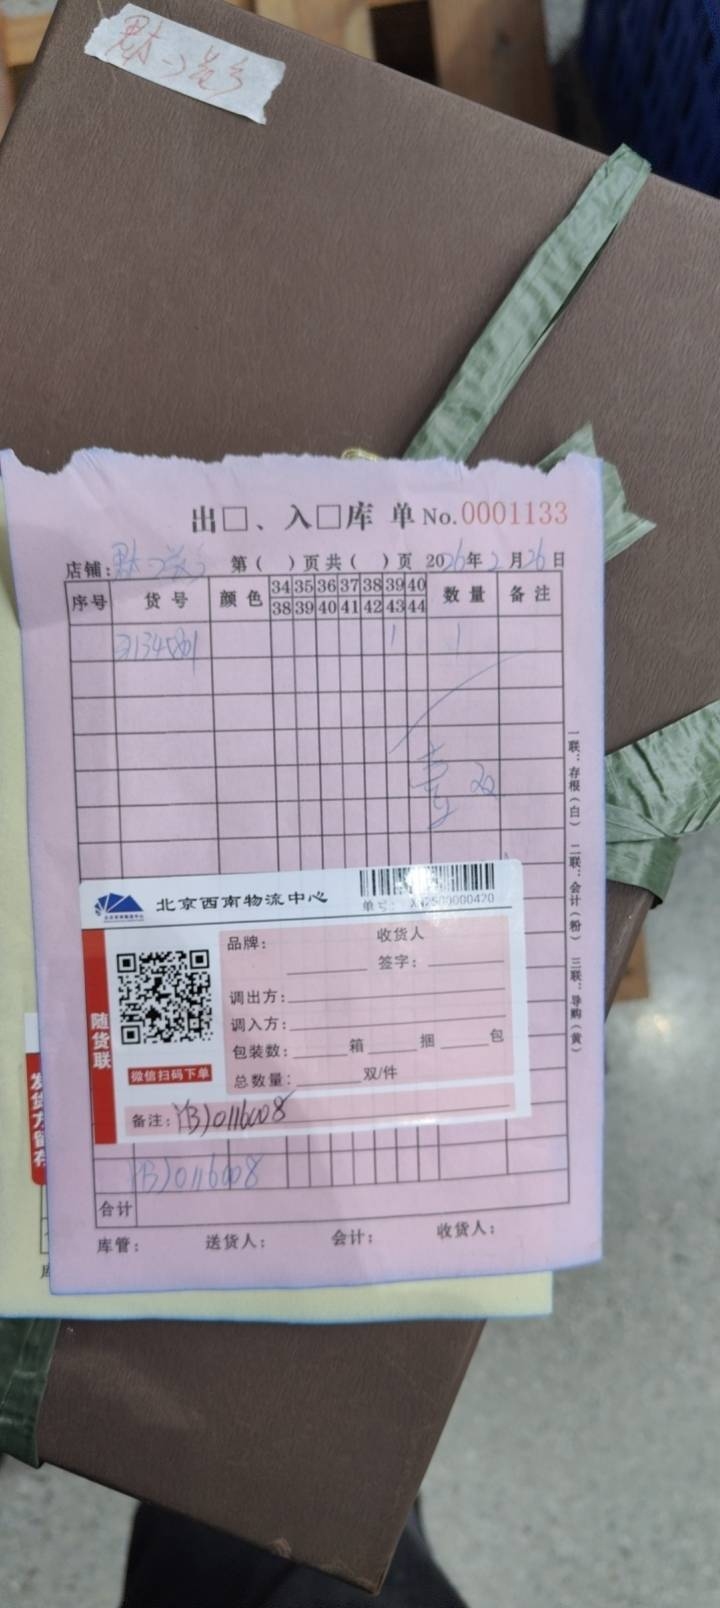 出□、入□库 单 No.0001133
店铺: 第( )页 共( )页 2026年2月26日
序号 货号 颜色 34 35 36 37 38 39 40 数量 备注
38 39 40 41 42 43 44
1 1
壹双
一联:存根(白) 二联:会计(粉) 三联:导购(黄)
北京西南物流中心
单号:
品牌: 收货人
签字:
调出方:
调入方:
包装数: 箱 捆 包
总数量: 双/件
随货联
微信扫码下单
备注: YB)0116008
发货方留存
YB)0116008
合计
库管: 送货人: 会计: 收货人: